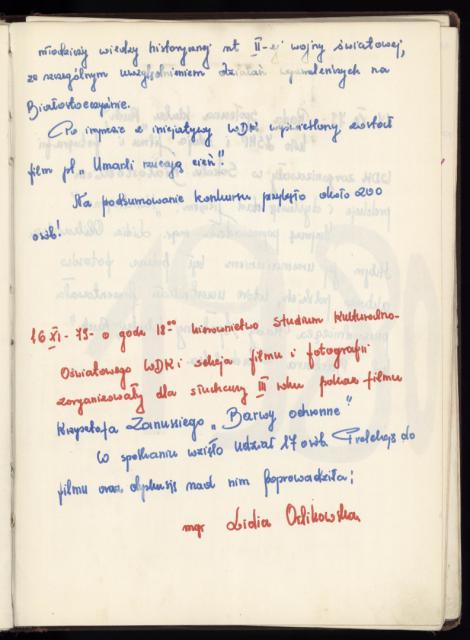 młodzieży wiedzy historycznej nt II-ej wojny światowej,
ze szczególnym uwzględnieniem działań wyzwoleńczych na
Białostocczyźnie.
Po imprezie z inicjatywy WDK wyświetlony został
film pt „Umarli rzucają cień"!
Na podsumowanie konkursu przybyło około 200
osób!
16 XI - 75 - o godz 18⁰⁰ kierownictwo Studium Kulturalno-
Oświatowego WDK i sekcja filmu i fotografii
zorganizowały dla słuchaczy III roku pokaz filmu
Krzysztofa Zanussiego „Barwy ochronne"
W spotkaniu wzięło udział 17 osób. Prelekcję do
filmu oraz dyskusję nad nim poprowadziła;
mgr Lidia Orlikowska